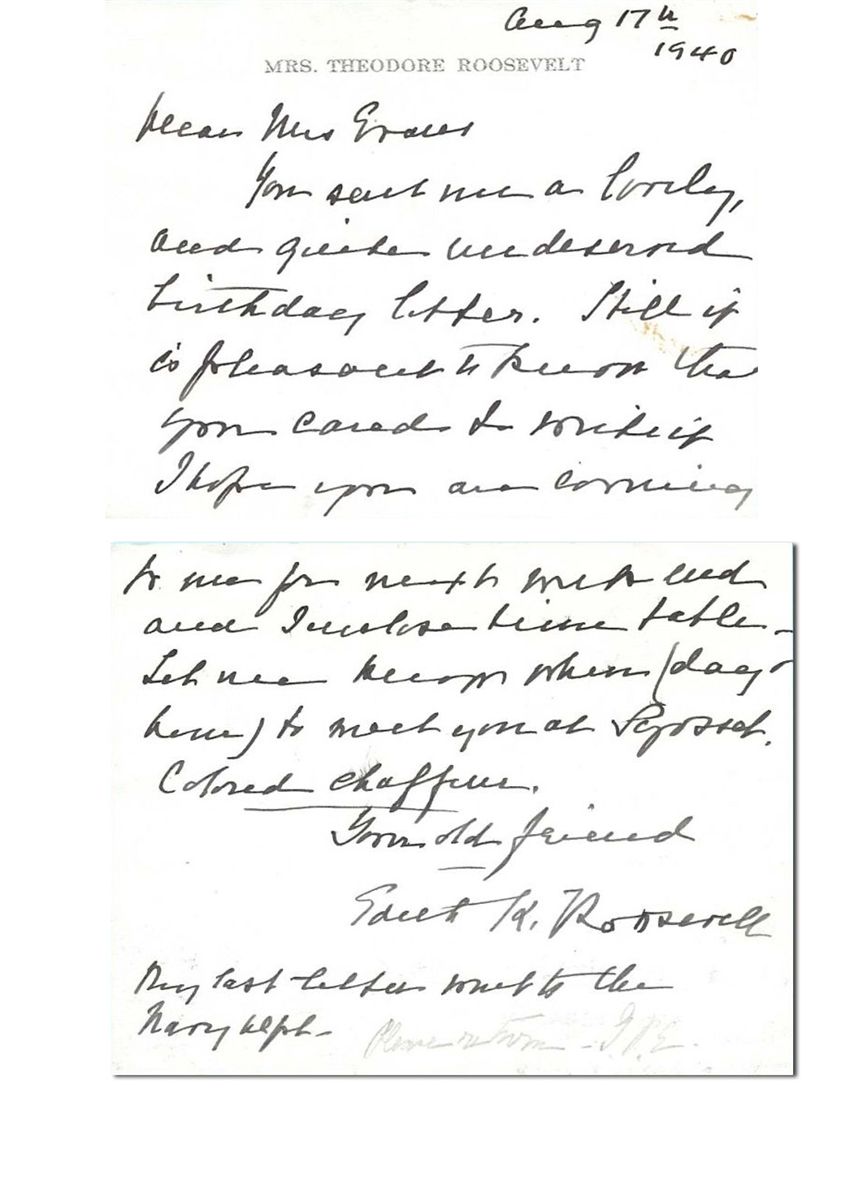 Aug 17th
1940
MRS. THEODORE ROOSEVELT
Dear Mrs Evans
You sent me a lovely,
and quite undeserved
birthday letter. Still it
is pleasant to know tha
you cared to write it
I hope you are coming
to me for next week end
and I inclose time table –
Let me know when (day
hour) to meet you at Syosset.
Colored chaffeur.
Your old friend
Edith K. Roosevelt
My last letter went to the
Navy Dept –
Please return –